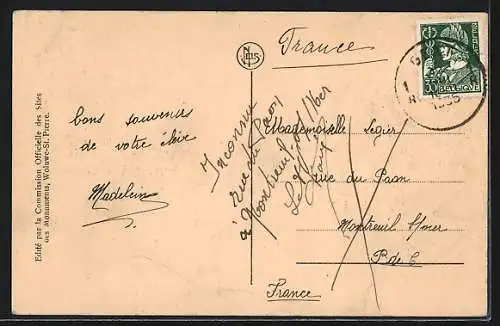 France
NELS
BELGIQUE
1935
Bons souvenirs
de votre élève
Madeleine
Inconnu
rue du Paon
à Montreuil sur Mer
Le facteur
Mademoiselle Legier
rue du Paon
Montreuil s/mer
P. de C
France
Edité par la Commission Officielle des Sites
des Monuments, Woluwe-St. Pierre.